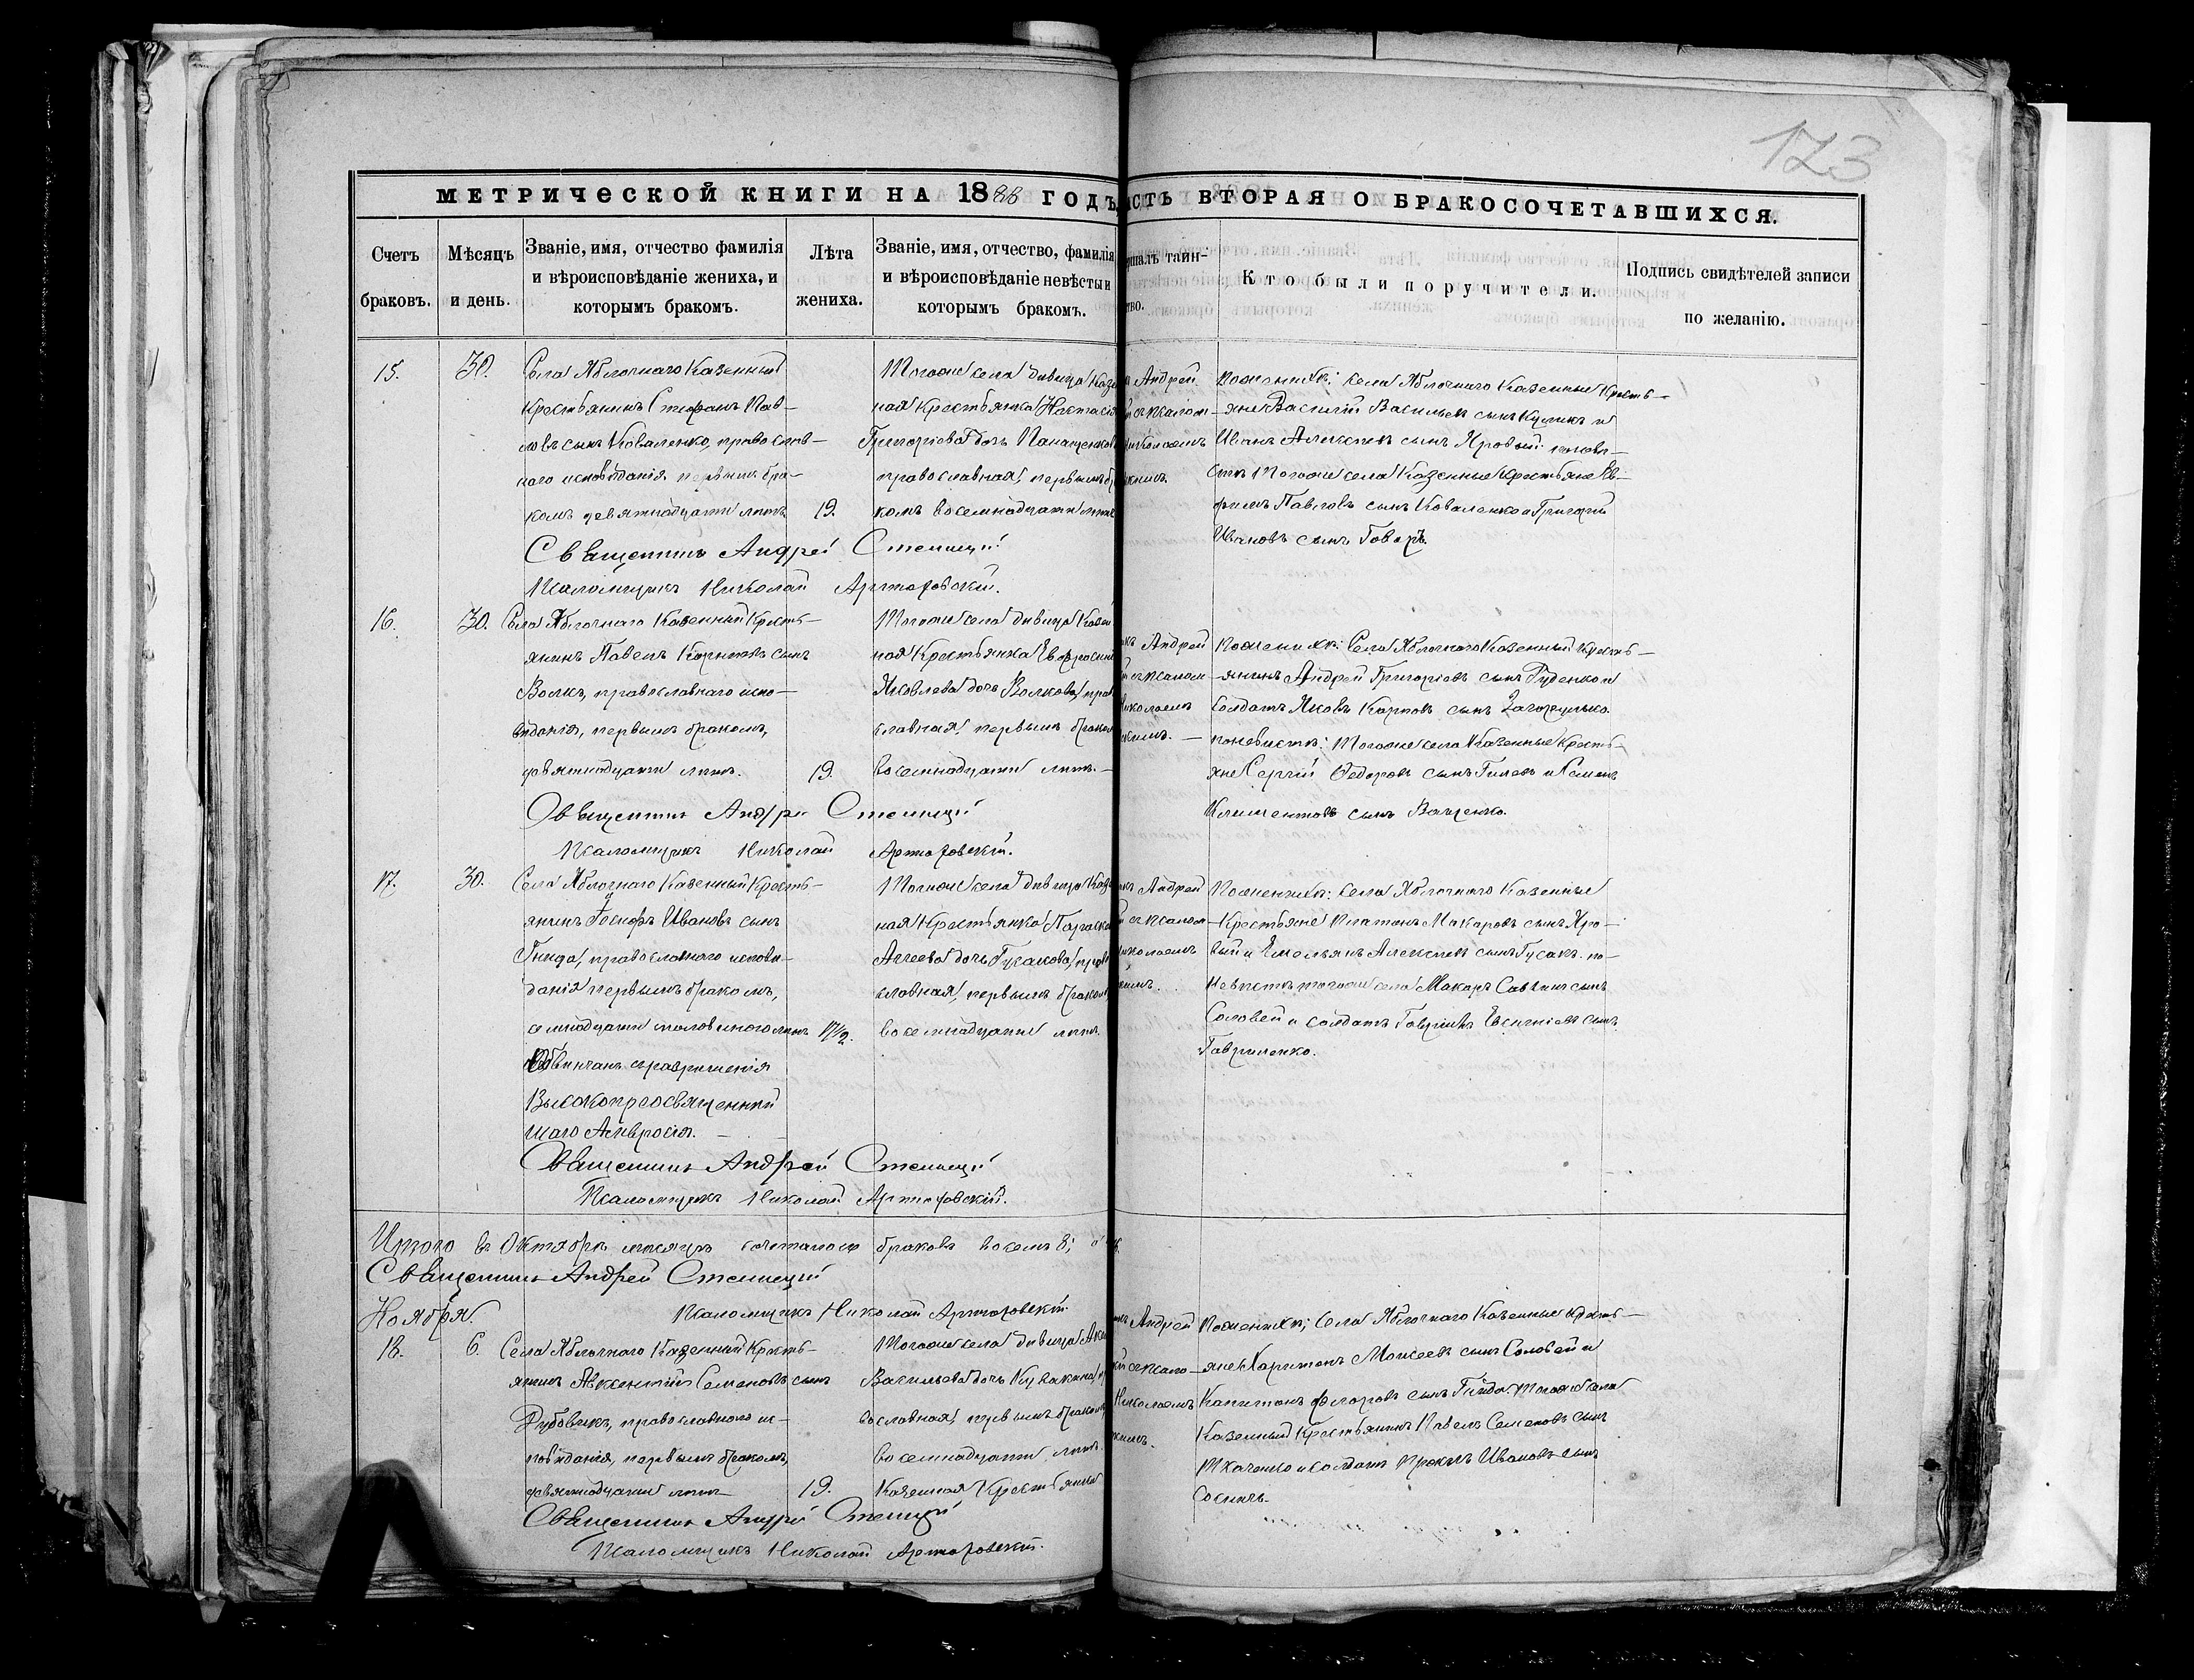 123
МЕТРИЧЕСКОЙ КНИГИ НА 1888 ГОДЪ
СТЬ ВТОРАЯ О БРАКОСОЧЕТАВШИХСЯ.
Счетъ браковъ.
Мѣсяцъ и день.
Званіе, имя, отчество фамилія
и вѣроисповѣданіе жениха, и
которымъ бракомъ.
Лѣта
жениха.
Званіе, имя, отчество, фамилія
и вѣроисповѣданіе невѣсты и
которымъ бракомъ.
ршалъ таин-
тво.
Кто были поручители.
Подпись свидѣтелей записи
по желанію.
15.
30.
Села Яблочнаго Казенный
Крестьянинъ Стефанъ Пав-
ловъ сынъ Коваленко, православ-
наго исповѣданія первымъ бра-
комъ девятнадцати лѣтъ
19.
Тогоже села дѣвица Казе
ная Крестьянка Настасія
Григоріева дочь
православная, первымъ б
комъ восемнадцати лѣтъ
Андрей
съ псалом-
Николаемъ
кимъ.
по женихѣ: села Яблочнаго Казенные Кресть-
яне Василій Васильевъ сынъ Куликъ и
Иванъ Алексѣевъ сынъ Яровый по невѣ-
стѣ тогоже села Казенные Крестьяне Еѳ-
фимъ Павловъ сынъ Коваленко и Григорій
Ивановъ сынъ
Священникъ Андрей Стеницкій
Псаломщикъ Николай Артюховскій.
16.
30.
Села Яблочнаго Казенный Кресть-
янинъ Павелъ Карповъ сынъ
Волкъ, православнаго испо-
вѣданія, первымъ бракомъ,
девятнадцати лѣтъ.
19.
Тогоже села дѣвица Казен
ная Крестьянка Евфросині
Яковлева дочь Волкова, прав
славная, первымъ браком
восемнадцати лѣтъ.
Андрей
съ псалом-
Николаемъ
кимъ.
по женихѣ: Села Яблочнаго Казенный Кресть-
янинъ Андрей Григоріевъ сынъ Руденко и
Солдатъ Яковъ Карповъ сынъ
по невѣстѣ: тогоже села Казенные Кресть-
яне Сергій Ѳедоровъ сынъ и Семенъ
Климентовъ сынъ Ващенко.
Священникъ Андрей Стеницкій
Псаломщикъ Николай Артюховскій.
17.
30.
Села Яблочнаго Казенный Кресть-
янинъ Іосифъ Ивановъ сынъ
Гнида, православнаго исповѣ-
данія первымъ бракомъ,
семнадцати половиною лѣтъ
17½.
Обвѣнчанъ съ разрѣшенія
Высокопреосвященнѣй
шаго Амвросія.
Тогоже села дѣвица Казе
ная Крестьянка Параске
Аггеева дочь Гусакова, прав
славная, первымъ браком,
восемнадцати лѣтъ.
Андрей
съ псалом-
Николаемъ
кимъ.
По женихѣ: села Яблочнаго Казенные
Крестьяне Платонъ Макаровъ сынъ Яро-
вый и Емельянъ Алексѣевъ сынъ Гусакъ. по-
невѣстѣ тогоже села Макаръ Саввинъ сынъ
Соловей и солдатъ Гавріилъ Евсигніевъ сынъ
Гавриленко.
Священникъ Андрей Стеницкій
Псаломщикъ Николай Артюховскій.
Итого въ Октябрѣ мѣсяцѣ сочеталось браковъ восемь 8;
Священникъ Андрей Стеницкій
Псаломщикъ Николай Артюховскій.
Ноября.
18.
6.
Села Яблочнаго Казенный Кресть-
янинъ Авксентій Семеновъ сынъ
православнаго ис-
повѣданія, первымъ бракомъ,
девятнадцати лѣтъ
19.
Тогоже села дѣвица
Васильева дочь
вославная, первымъ браком
восемнадцати лѣтъ.
Казенная Крестьянка
Андрей
съ псало-
Николаемъ
кимъ.
По женихѣ; Села Яблочнаго Казенные Кресть-
яне Харитонъ Моисеевъ сынъ Соловей и
Капитонъ сынъ тогоже села
Казенный Крестьянинъ Павелъ Семеновъ сынъ
Ткаченко и солдатъ Ивановъ сынъ
Священникъ Андрей Стеницкій
Псаломщикъ Николай Артюховскій.